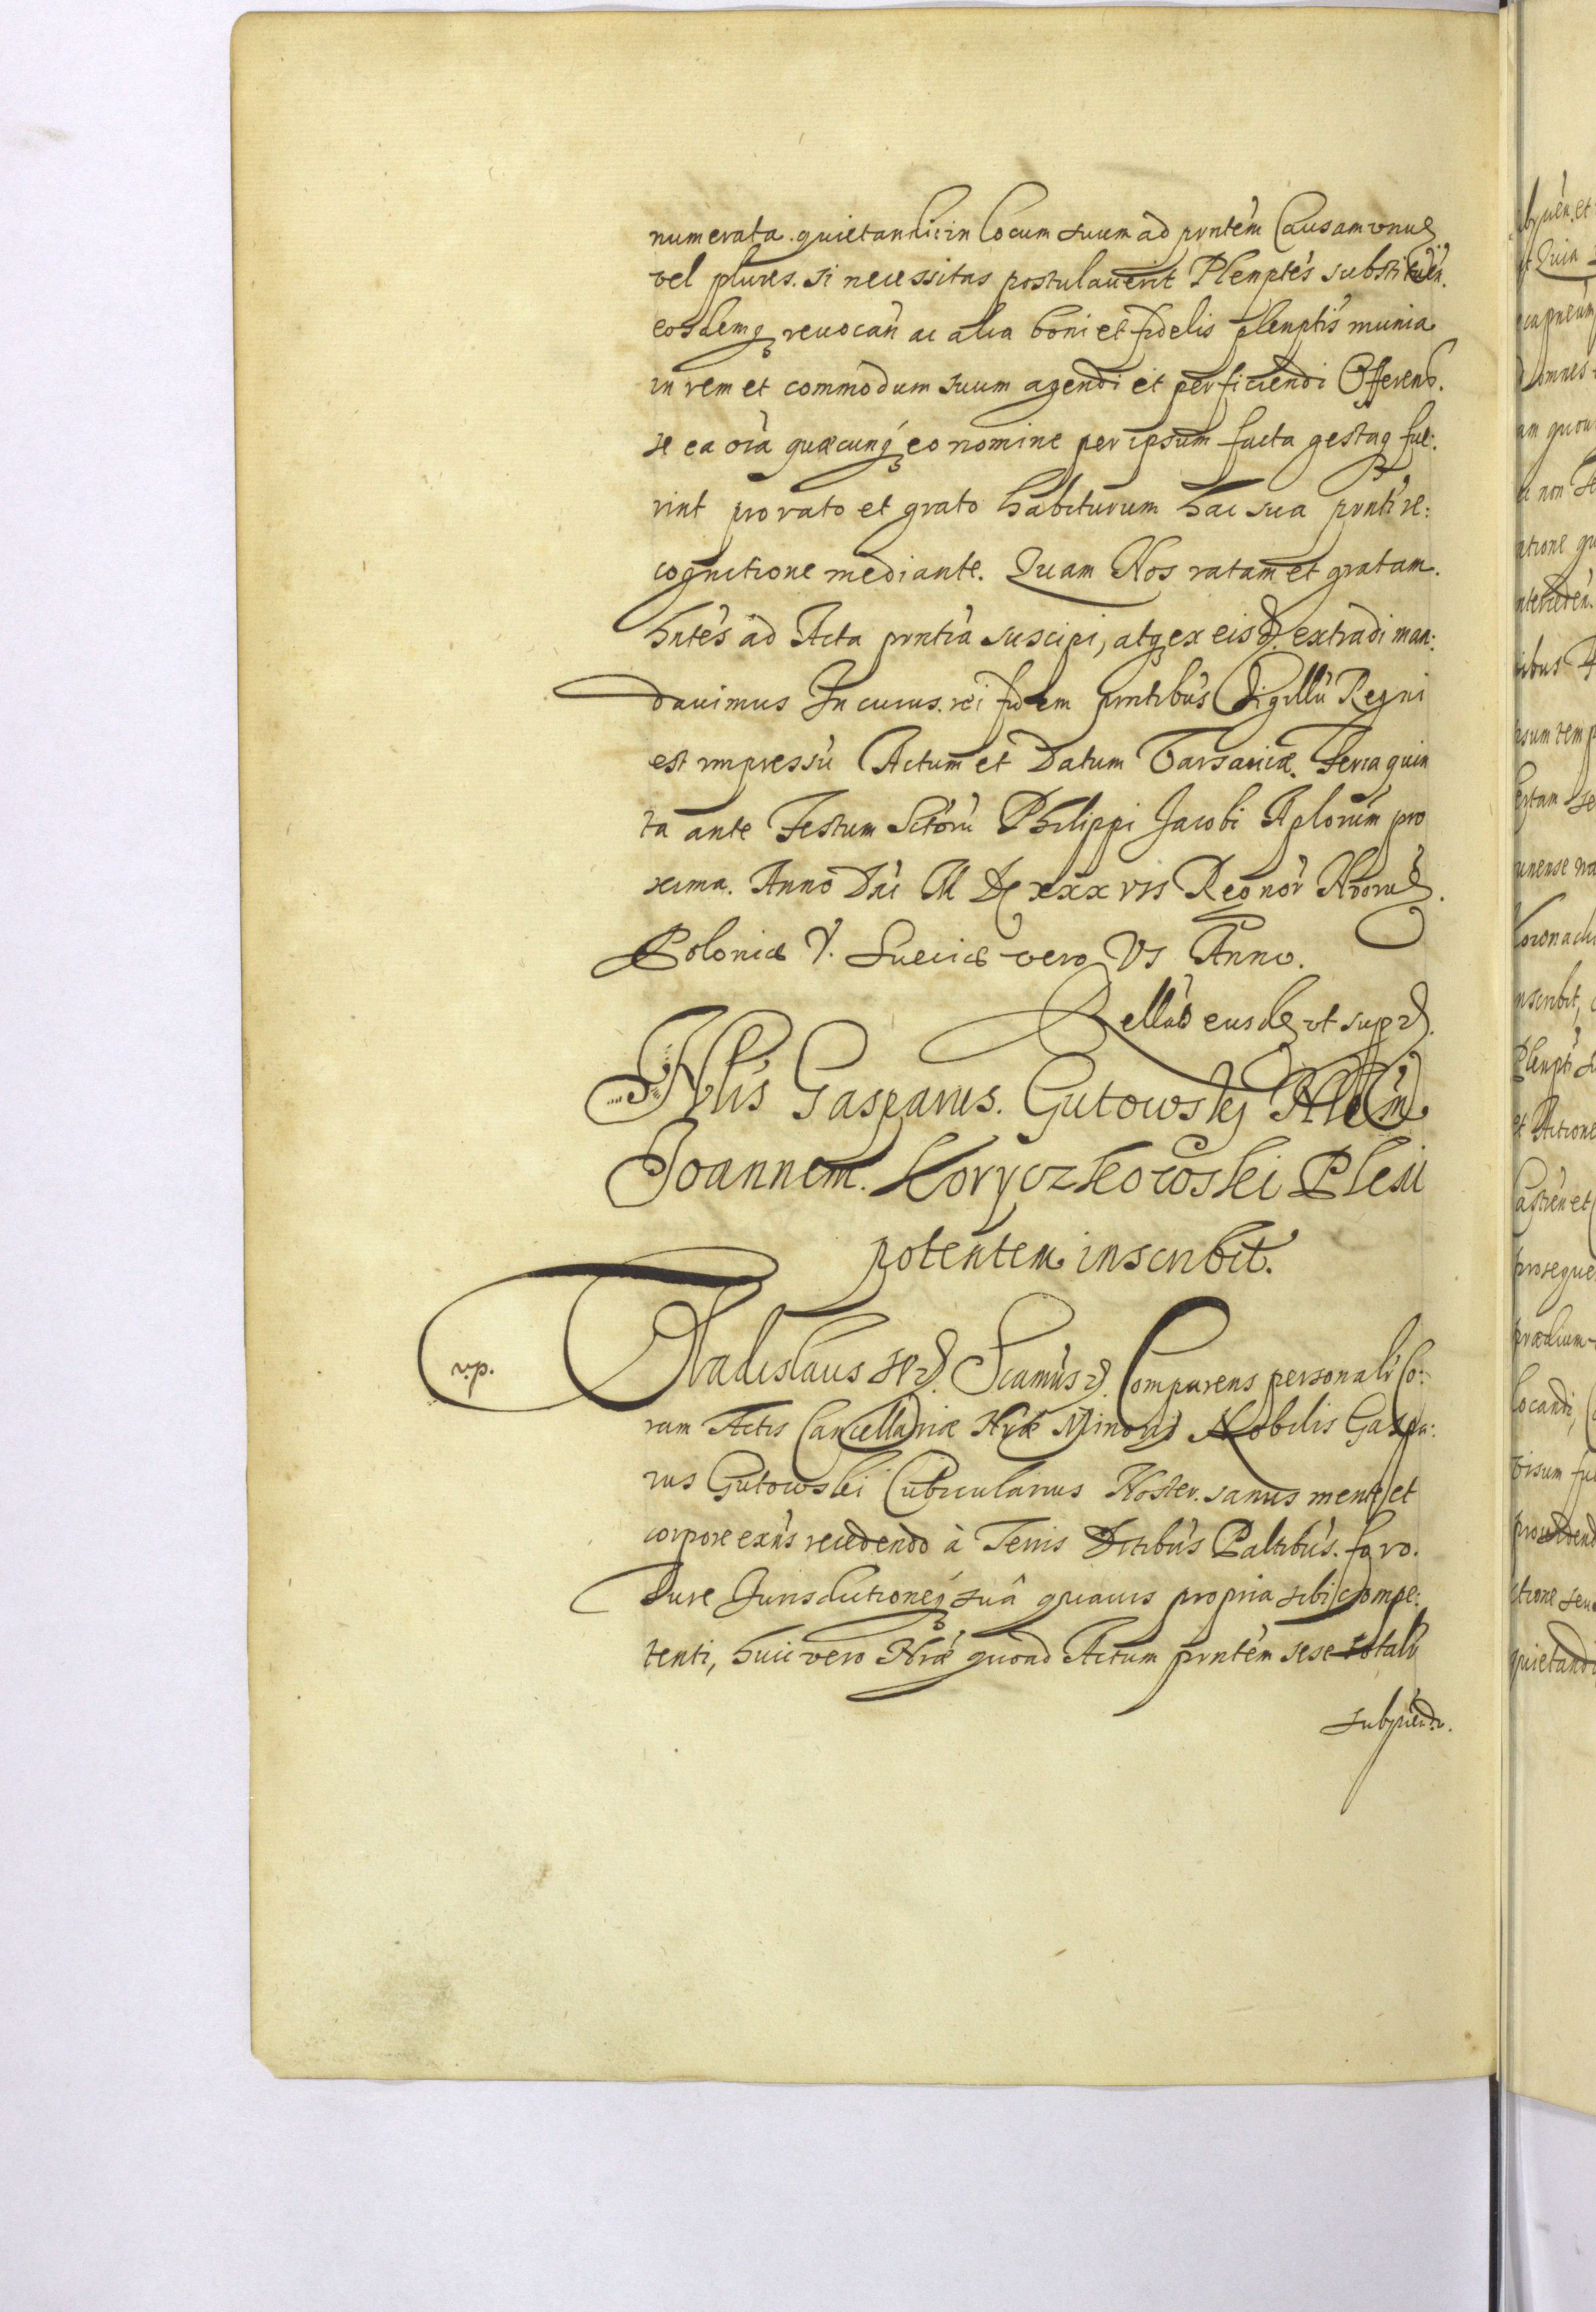 numerata quietandi in locum suum ad prntem Causam vnu
vel plures. si necessitas postulauerit Plenptes substituen.
eosdemq reuocan ac alia boni et fidelis plenptis munia
in rem et commodum suum agendi et perficiendi Offerens.
se ea oia quæcunq eo nomine per ipsum facta gestaq fue:
rint pro rato et grato habiturum hac sua prnti re:
cognitione mediante. Quam Nos ratam et gratam
hntes ad Acta prntia suscipi, atq ex eisd. extradi man:
dauimus In cuius rei fidem prntibus Sigillu Regni
est impressu Actum et Datum Varsauiæ. Feria quin
ta ante Festum Sctoru Philippi Jacobi Aplorum pro
xima. Anno Dni M DC xxx vii Regnor Nroru
Poloniæ V. Sueciæ vero VI Anno.
Rella eusde vt supr.
Nblis Gasparus. Gutowskj
Joannem. Koryczkowski Pleni
potentem inscribit.
v.p.
Vladislaus Comparens personalr Co:
ram Actis Cancellariæ Nræ Minoris Nobilis Gaspa:
rus Gutowski Cubicularius Noster. sanus mente et
corpore exns recedendo à Terris Dctibus Paltibus. foro.
Iure Jurisdictioneq suâ quauis propria sibi compe:
tenti, huic vero Nræ quoad Actum prntem sese totalr
subyciendo.